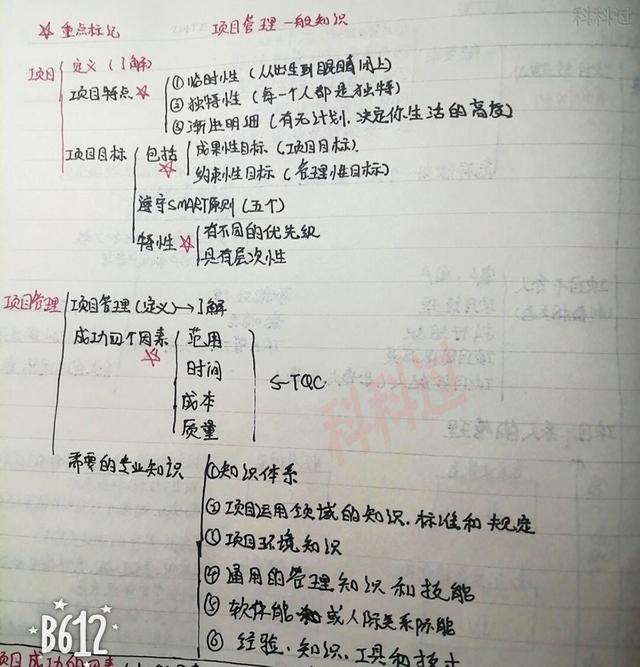 科科过
☆ 重点标记 项目管理一般知识
项目 定义 (了解)
项目特点 ☆ ① 临时性 (从出生到眼睛闭上)
② 独特性 (每一个人都是独特)
③ 渐进明细 (有无计划.决定你生活的高度)
项目目标 包括 ☆ 成果性目标 (项目目标)
约束性目标 (管理性目标)
遵守SMART原则 (五个)
特性 ☆ 有不同的优先级
具有层次性
项目管理 项目管理 (定义) → 了解
成功四个因素 ☆ 范围
时间
成本
质量
← TQC
科科过
需要的专业知识 ①知识体系
② 项目运用领域的知识.标准和规定
③ 项目环境知识
④ 通用的管理知识和技能
⑤ 软件能 或人际关系际能
⑥ 经验.知识.工具和技术
B612
项目成功的因素